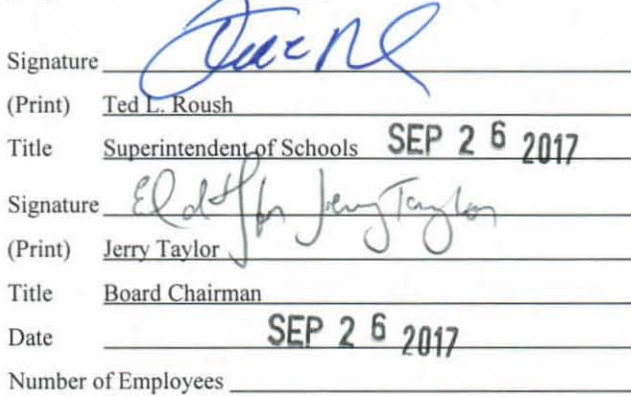 Signature
(Print) Ted L. Roush
Title Superintendent of Schools SEP 26 2017
Signature for Jerry Taylor
(Print) Jerry Taylor
Title Board Chairman
Date SEP 26 2017
Number of Employees